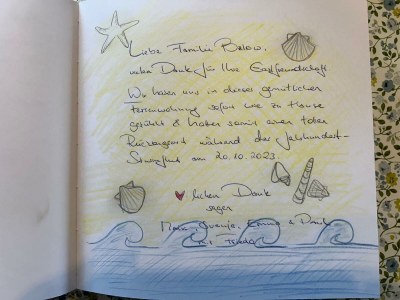 Liebe Familie Below,
vielen Dank für Ihre Gastfreundschaft
Wir haben uns in dieser gemütlichen
Ferienwohnung sofort wie zu Hause
gefühlt & hatten somit einen tollen
Rückzugsort während der Jahrhundert-
Sturmflut am 20.10.2023.
lichen Dank
sagen
&
mit Frieda